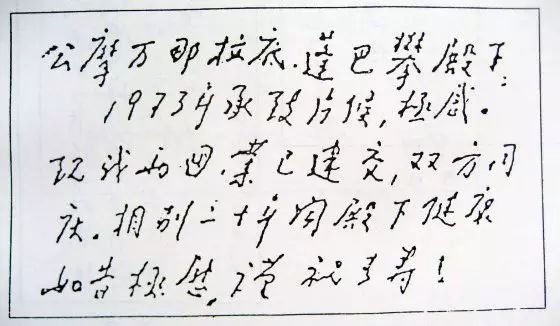 公摩万那拉底·蓬巴攀殿下:
1973年承致片候,極感。
现我两国,業已建交,双方同
庆。相别二十年闻殿下健康
如昔極慰,谨祝长寿!